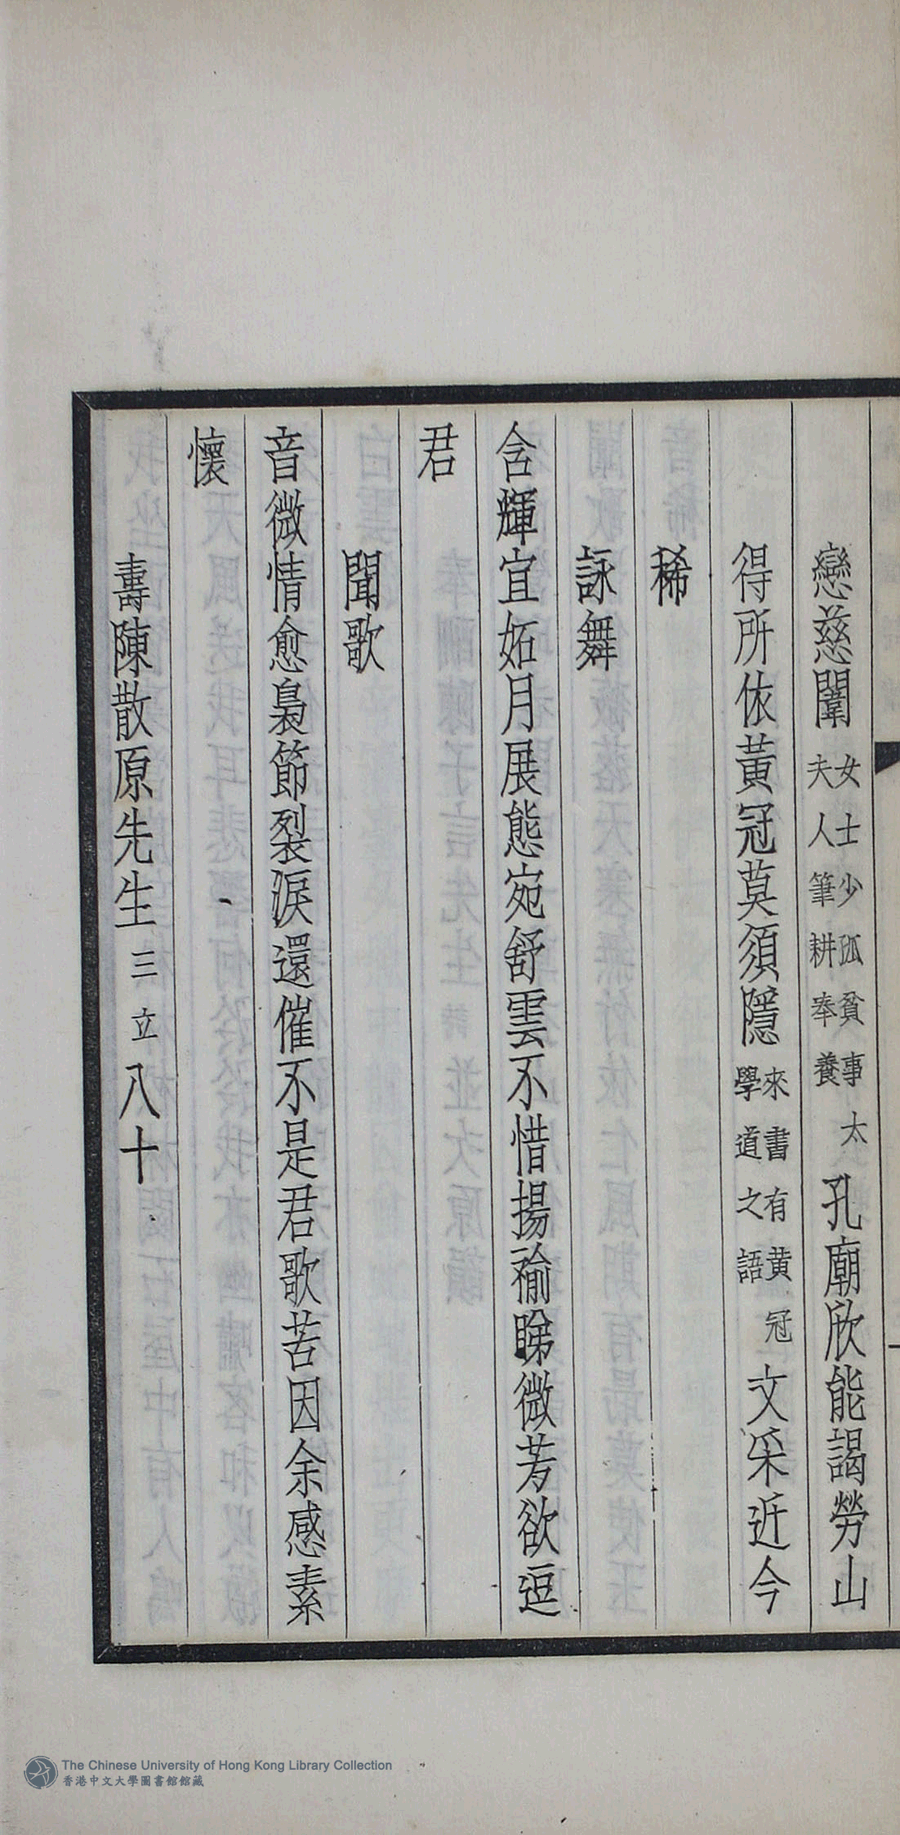 戀慈闈女士少孤貧事太夫人筆耕奉養孔廟欣能謁勞山
得所依黃冠莫須隱來書有黄冠學道之語文采近今
稀
詠舞
含輝宜妬月展態宛舒雲不惜揚褕睇微芳欲逗
君
聞歌
音微情愈裊節裂淚還催不是君歌苦因余感素
懷
壽陳散原先生三立八十
The Chinese University of Hong Kong Library Collection
香港中文大學圖書館館藏